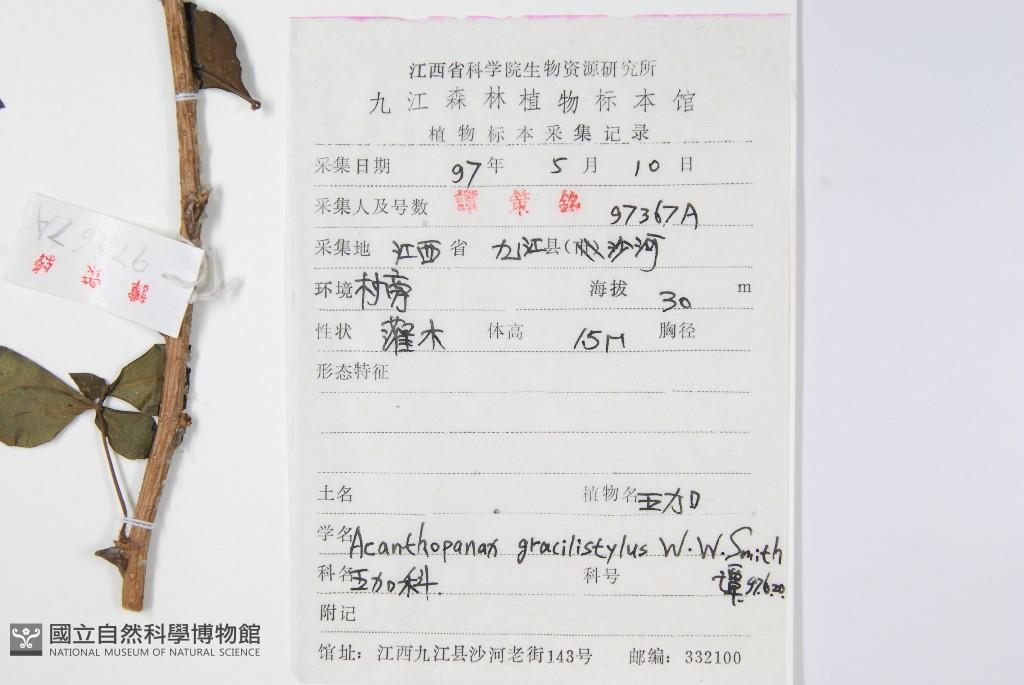 江西省科学院生物资源研究所
九江森林植物标本馆
植物标本采集记录
采集日期 97年 5月 10日
采集人及号数 譚策銘 97367A
采集地 江西省 九江县(市)沙河
环境 村旁 海拔 30 m
性状 灌木 体高 1.5M 胸径
形态特征
土名 植物名 五加
学名 Acanthopanax gracilistylus W.W.Smith
科名 五加科 科号 谭 97.6.20
附记
馆址: 江西九江县沙河老街143号 邮编: 332100
97367A
譚策銘
國立自然科學博物館
NATIONAL MUSEUM OF NATURAL SCIENCE